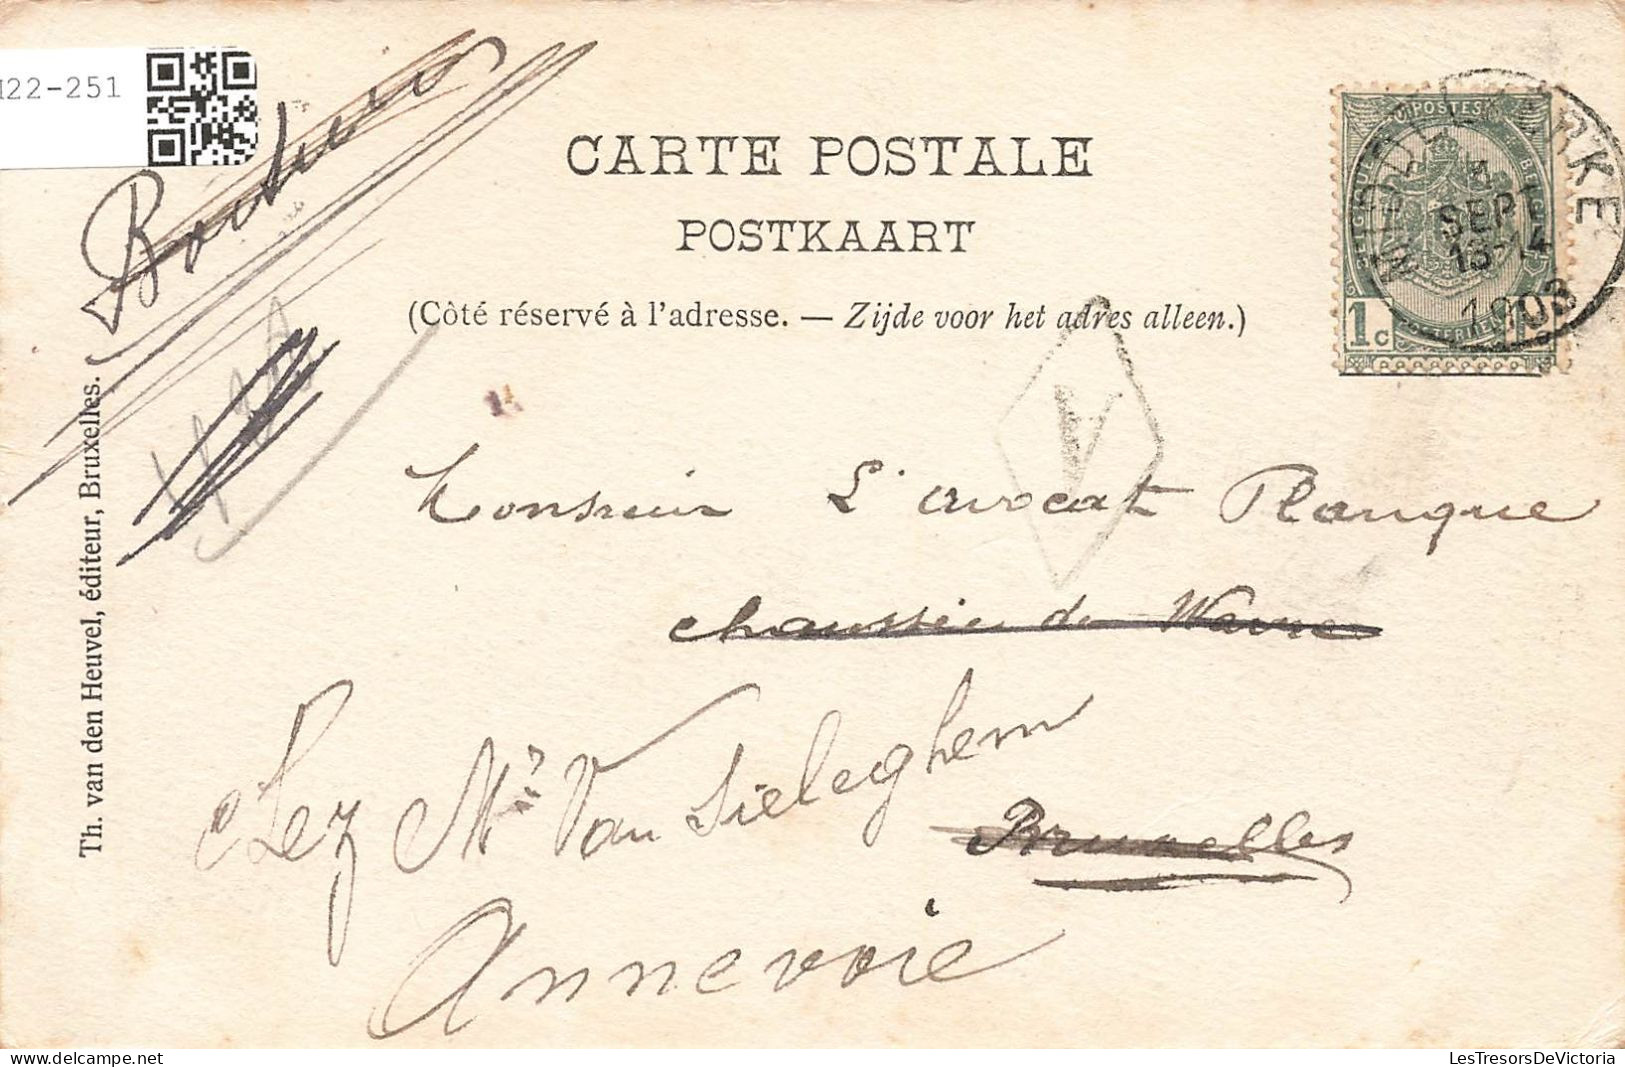 I22-251
CARTE POSTALE
POSTKAART
(Côté réservé à l'adresse. — Zijde voor het adres alleen.)
POSTES
1c
MIDDELKERKE
4
SEPT
13-14
1903
A
Th. van den Heuvel, éditeur, Bruxelles.
Monsieur L'avocat Planque
chaussée de Wavre
Chez Mr Van Sieleghem
Bruxelles
Annevoie
LesTresorsDeVictoria